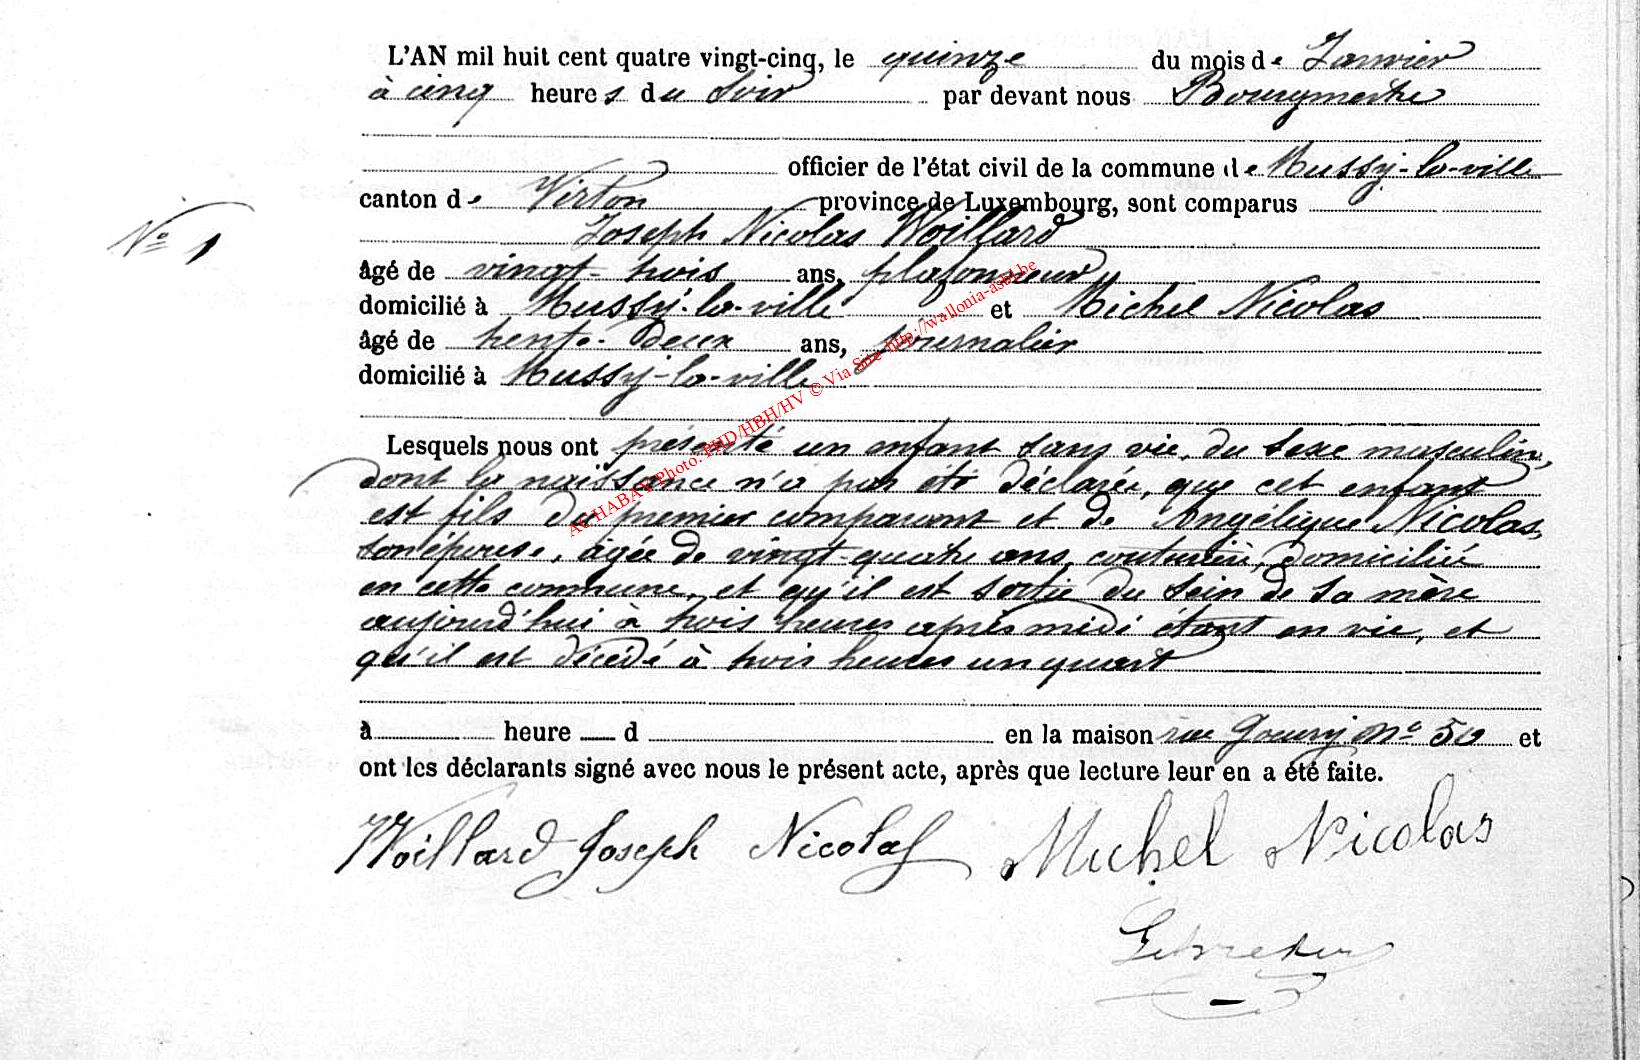 L'AN mil huit cent quatre vingt-cinq, le quinze du mois de Janvier
à cinq heures du soir par devant nous Bourgmestre
officier de l'état civil de la commune de Mussy-la-ville
canton de Virton province de Luxembourg, sont comparus
N° 1
Joseph Nicolas Woillard
âgé de vingt-trois ans, plafonneur
domicilié à Mussy-la-ville et Michel Nicolas
âgé de trente-deux ans, journalier
domicilié à Mussy-la-ville
ACHABA © Photo: PHD/HBH/HV © Via Site http://wallonia-asbl.be
Lesquels nous ont présenté un enfant sans vie, du sexe masculin,
dont la naissance n'a pas été déclarée, que cet enfant
est fils du premier comparant et de Angélique Nicolas,
son épouse, âgée de vingt-quatre ans, couturière, domiciliée
en cette commune, et qu'il est sortie du sein de sa mère
aujourd'hui à trois heures après midi étant en vie, et
qu'il est décédé à trois heures un quart
à heure d en la maison rue N° 50 et
ont les déclarants signé avec nous le présent acte, après que lecture leur en a été faite.
Woillard Joseph Nicolas Michel Nicolas